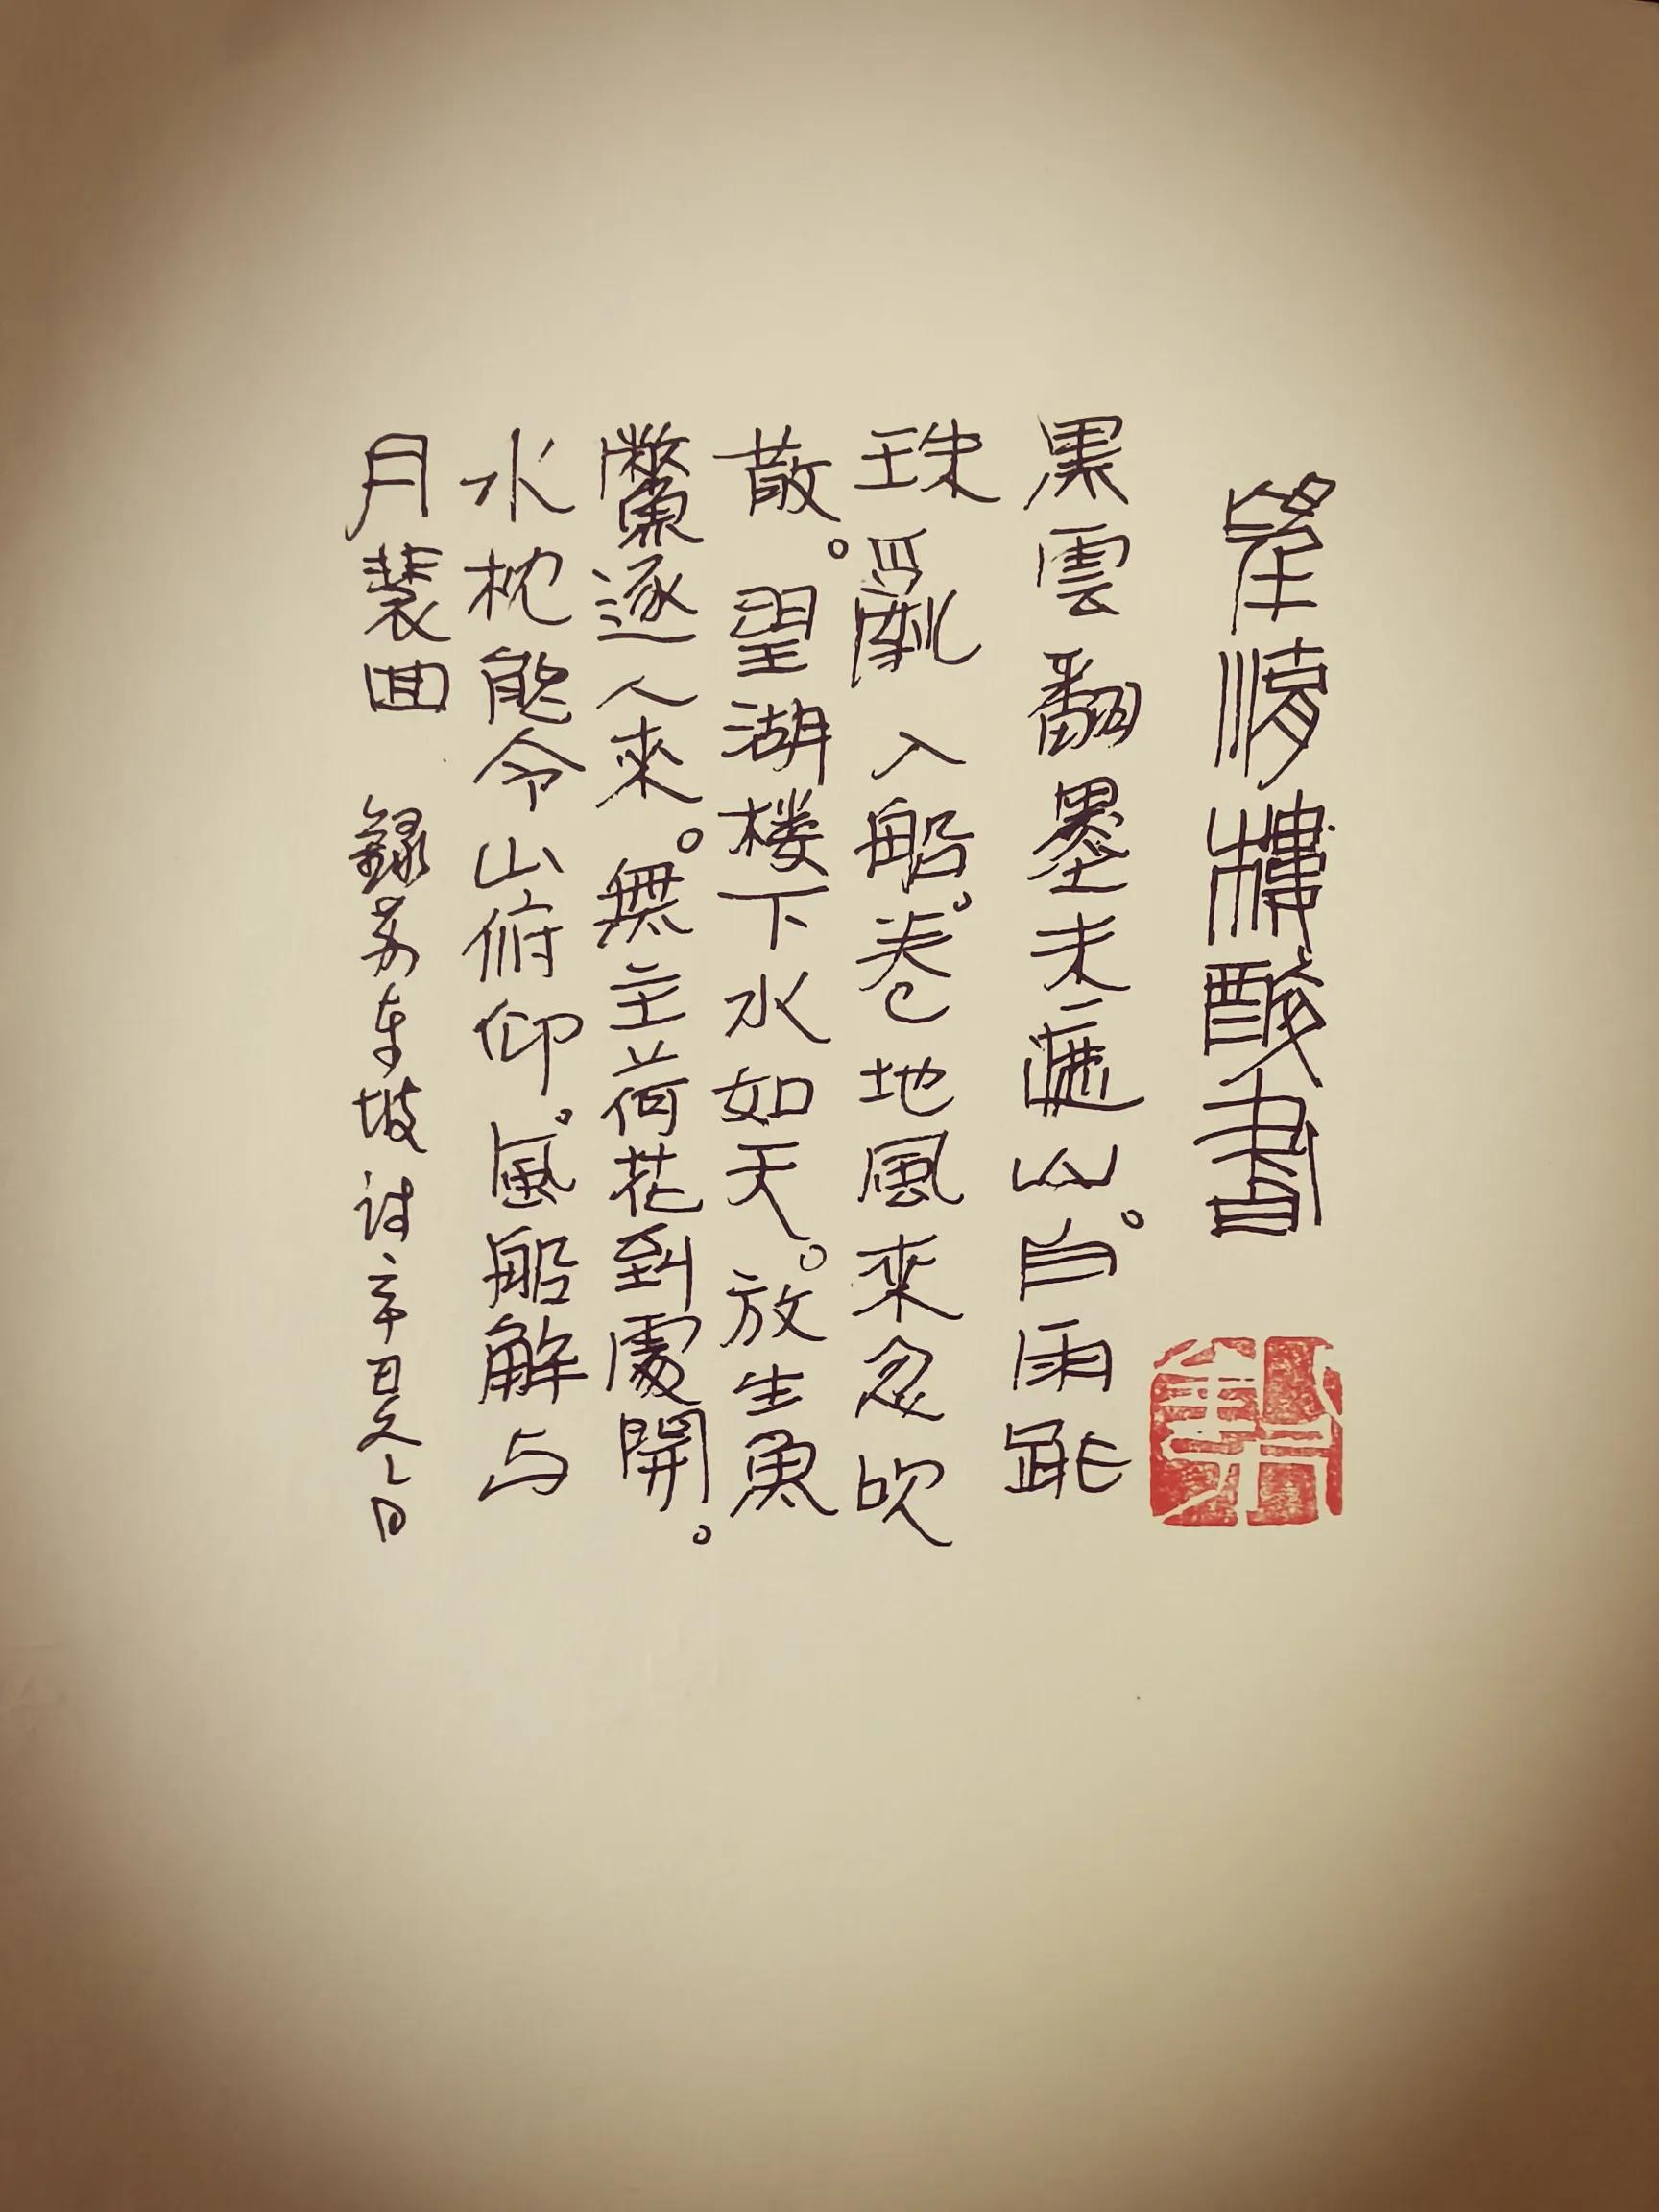 望湖樓醉書
黑雲翻墨未遮山。白雨跳
珠亂入船。卷地風來忽吹
散。望湖楼下水如天。放生魚
鱉逐人來。無主荷花到處開。
水枕能令山俯仰。風船解与
月裴回 録苏东坡诗辛丑冬